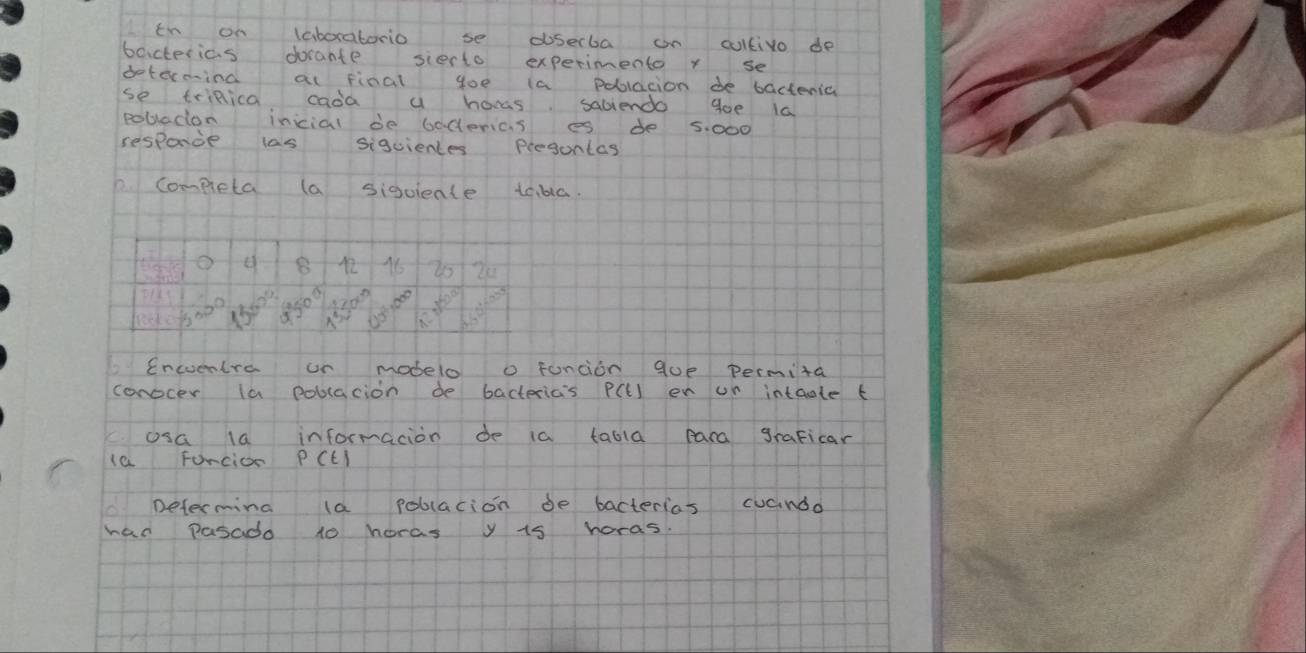 En on laboratorio se obserba on cultivo de
bacterias dorante sierto experimento y se
determina al final goe la Poblacion de bacteria
se triplica cada 4 horas. sabiendo goe la
poblacion inicial de bacterias es de 5.000
responde las siguientes Pregontas
Completa la siguiente tabla.
0 4 8 12 16 20 24
5000
Encuentra un modelo o Función que Permita
conocer la población de bacteria's P(t) en un
c osa la información de la tabla para graficar
la Funcion P(t)
d Determina la población de bacterias cuando
han Pasado 10 horas y 15 horas.